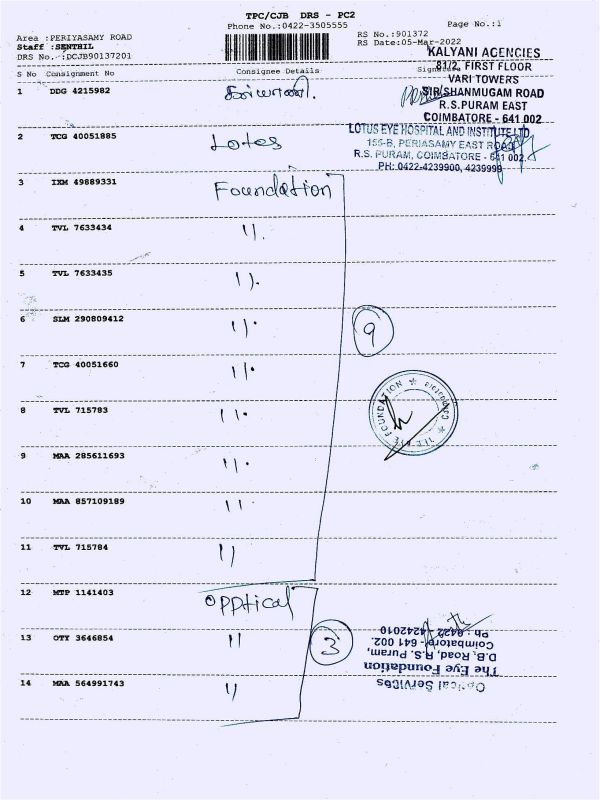 TPC/CJB DRS - PC2
Phone No.:0422-3505555
Page No.:1
Area :PERIYASAMY ROAD
Staff :SENTHIL
DRS No.:DCJB90137201
RS No.:901372
RS Date:05-Mar-2022
S No Consignment No Consignee Details Signature
KALYANI AGENCIES
81/2, FIRST FLOOR
VARI TOWERS
SIR SHANMUGAM ROAD
R.S.PURAM EAST
COIMBATORE - 641 002
1 DDG 4215982 கல்யாணி.
2 TCG 40051885 Lotes
LOTUS EYE HOSPITAL AND INSTITUTE LTD
155-B, PERIASAMY EAST ROAD
R.S. PURAM, COIMBATORE - 641 002.
PH: 0422-4239900, 4239999
3 IXM 49889331 Foundation
4 TVL 7633434 11.
5 TVL 7633435 11.
6 SLM 290809412 11.
9
7 TCG 40051660 11.
8 TVL 715783 11.
THE EYE FOUNDATION ★ Coimbatore ★
9 MAA 285611693 11.
10 MAA 857109189 11
11 TVL 715784 11
12 MTP 1141403 opptical
13 OTY 3646854 11
3
14 MAA 564991743 11
Optical Services
The Eye Foundation
D.B. Road, R.S. Puram,
Coimbatore - 641 002.
Ph : 0422 - 4242010